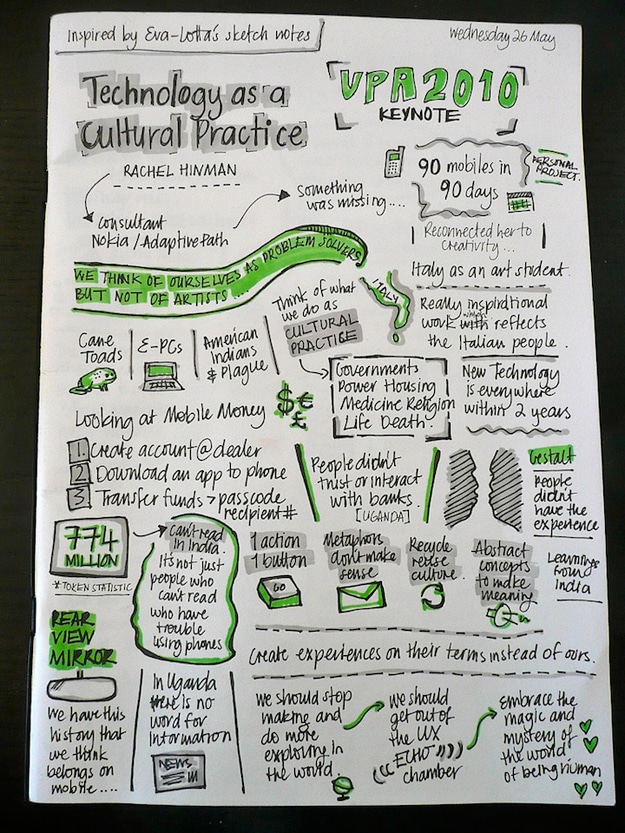 Inspired by Eva-Lotta's sketch notes
Wednesday 26 May
Technology as a
Cultural Practice
RACHEL HINMAN
UPA2010
KEYNOTE
Consultant
Nokia/Adaptive Path
Something
was missing....
90 mobiles in
90 days
PERSONAL
PROJECT.
Reconnected her to
creativity...
Italy as an art student.
WE THINK OF OURSELVES AS PROBLEM SOLVERS
BUT NOT OF ARTISTS....
ITALY
Really inspirational
work which reflects
the Italian people.
Cane
Toads
E-PCs
American
Indians
& Plague
Think of what
we do as
CULTURAL
PRACTICE
Governments
Power Housing
Medicine Religion
Life Death.
New Technology
is everywhere
within 2 years
Looking at Mobile Money
$€
£
1. Create account@dealer
2 Download an app to phone
3 Transfer funds > passcode
recipient#
People didn't
trust or interact
with banks.
[UGANDA]
Gestalt
People
didn't
have the
experience
774
MILLION
*TOKEN STATISTIC
Can't read
in India.
It's not just
people who
can't read
who have
trouble
using phones
1 action
1 button
GO
Metaphors
don't make
sense
Recycle
reuse
culture.
Abstract
concepts
to make
meaning
Learnings
from
India
REAR
VIEW
MIRROR
Create experiences on their terms instead of ours.
We have this
history that
we think
belongs on
mobile....
In Uganda
there is no
word for
Information
NEWS
We should stop
making and
do more
exploring in
the world
We should
get out of
the UX
((ECHO))))
chamber
Embrace the
magic and
mystery of
the world
of being human